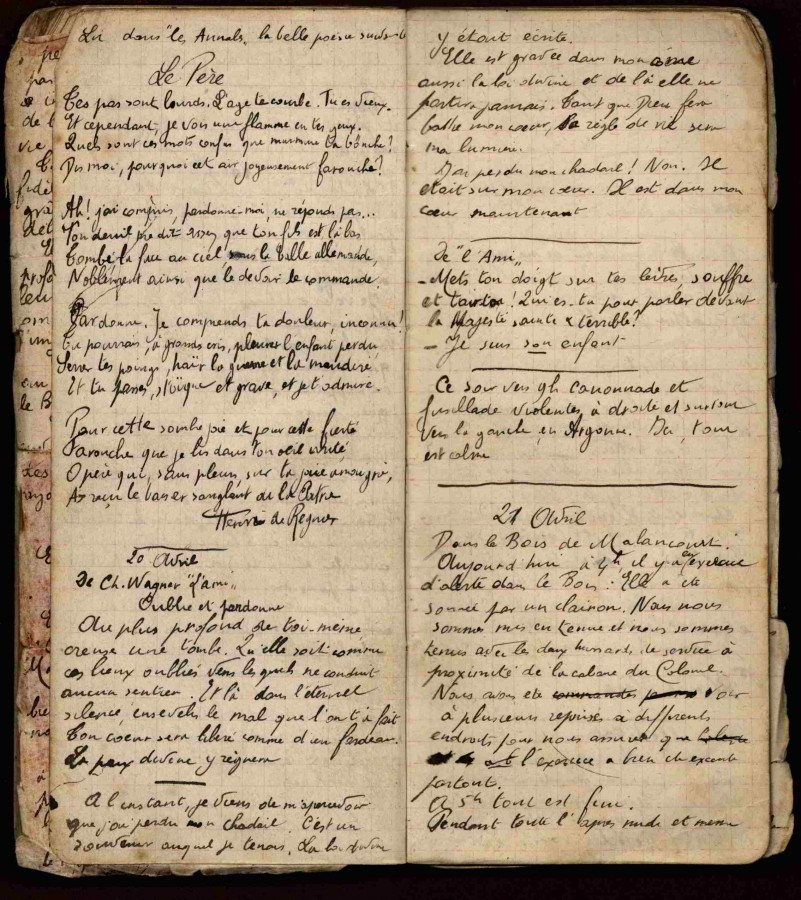 Lu dans "les Annales" la belle poésie suivante
Le Père
Tes pas sont lourds. L'age te courbe. Tu es vieux.
Et cependant je vois une flamme en tes yeux.
Quels sont ces mots confus que murmure ta bouche?
Dis moi, pourquoi cet air joyeusement farouche?
Ah! j'ai compris, pardonne-moi, ne réponds pas...
Ton deuil me dit assez que ton fils est là bas
Tombé la face au ciel sous la balle allemande,
Noblement ainsi que le devoir le commande.
Pardonne. Je comprends ta douleur, inconnu!
Tu pourrais, à grands cris, pleurer l'enfant perdu
Serrer tes poings, haïr la guerre et la maudire
Et tu passes, stoïque et grave, et je t'admire.
Pour cette sombre joie et pour cette fierté
Farouche que je lis dans ton oeil
O père qui, sans pleurs, sur ta joue amaigrie,
As reçu le baiser sanglant de la Patrie
Henri de Regnier
20 Avril
De Ch. Wagner "L'ami"
Oublie et pardonne
Au plus profond de toi-même
creuse une tombe. Qu'elle soit comme
ces lieux oubliés vers lesquels ne conduit
aucun sentier. Et là dans l'éternel
silence, ensevelis le mal que l'on t'a fait
Ton coeur sera libre comme d'un fardeau.
La paix divine y règnera
A l'instant, je viens de m'apercevoir
que j'ai perdu mon chadaïl. C'est un
souvenir auquel je tenais. La loi divine
y était écrite.
Elle est gravée dans mon âme
aussi la loi divine et de là elle ne
partira jamais. Tant que Dieu fera
battre mon coeur, la règle de vie sera
ma lumière.
J'ai perdu mon chadaïl! Non. Il
était sur mon coeur. Il est dans mon
coeur maintenant
De "l'Ami"
- Mets ton doigt sur tes lèvres, souffre
et tais toi! Qui es-tu pour parler devant
la Majesté sainte & terrible?
- Je suis son enfant
Ce soir vers 9h canonnade et
fusillade violentes à droite et surtout
vers la gauche en Argonne. Ici, tout
est calme
21 Avril
Dans le Bois de Malancourt.
Aujourd'hui à 4h, il y a eu exercice
d'alerte dans le Bois. Elle a été
sonnée par un clairon. Nous nous
sommes mis en tenue et nous sommes
tenus avec les deux hussards de service à
proximité de la cabane du Colonel.
Nous avons été commandés pour voir
à plusieurs reprises à différents
endroits pour nous assurer que
l'exercice a bien été exécuté
partout.
A 5h tout est fini.
Pendant toute l'après midi et même